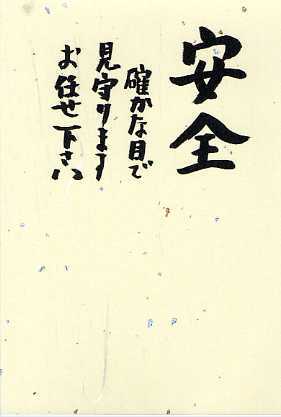 安全
確かな目で
見守ります
お任せ下さい